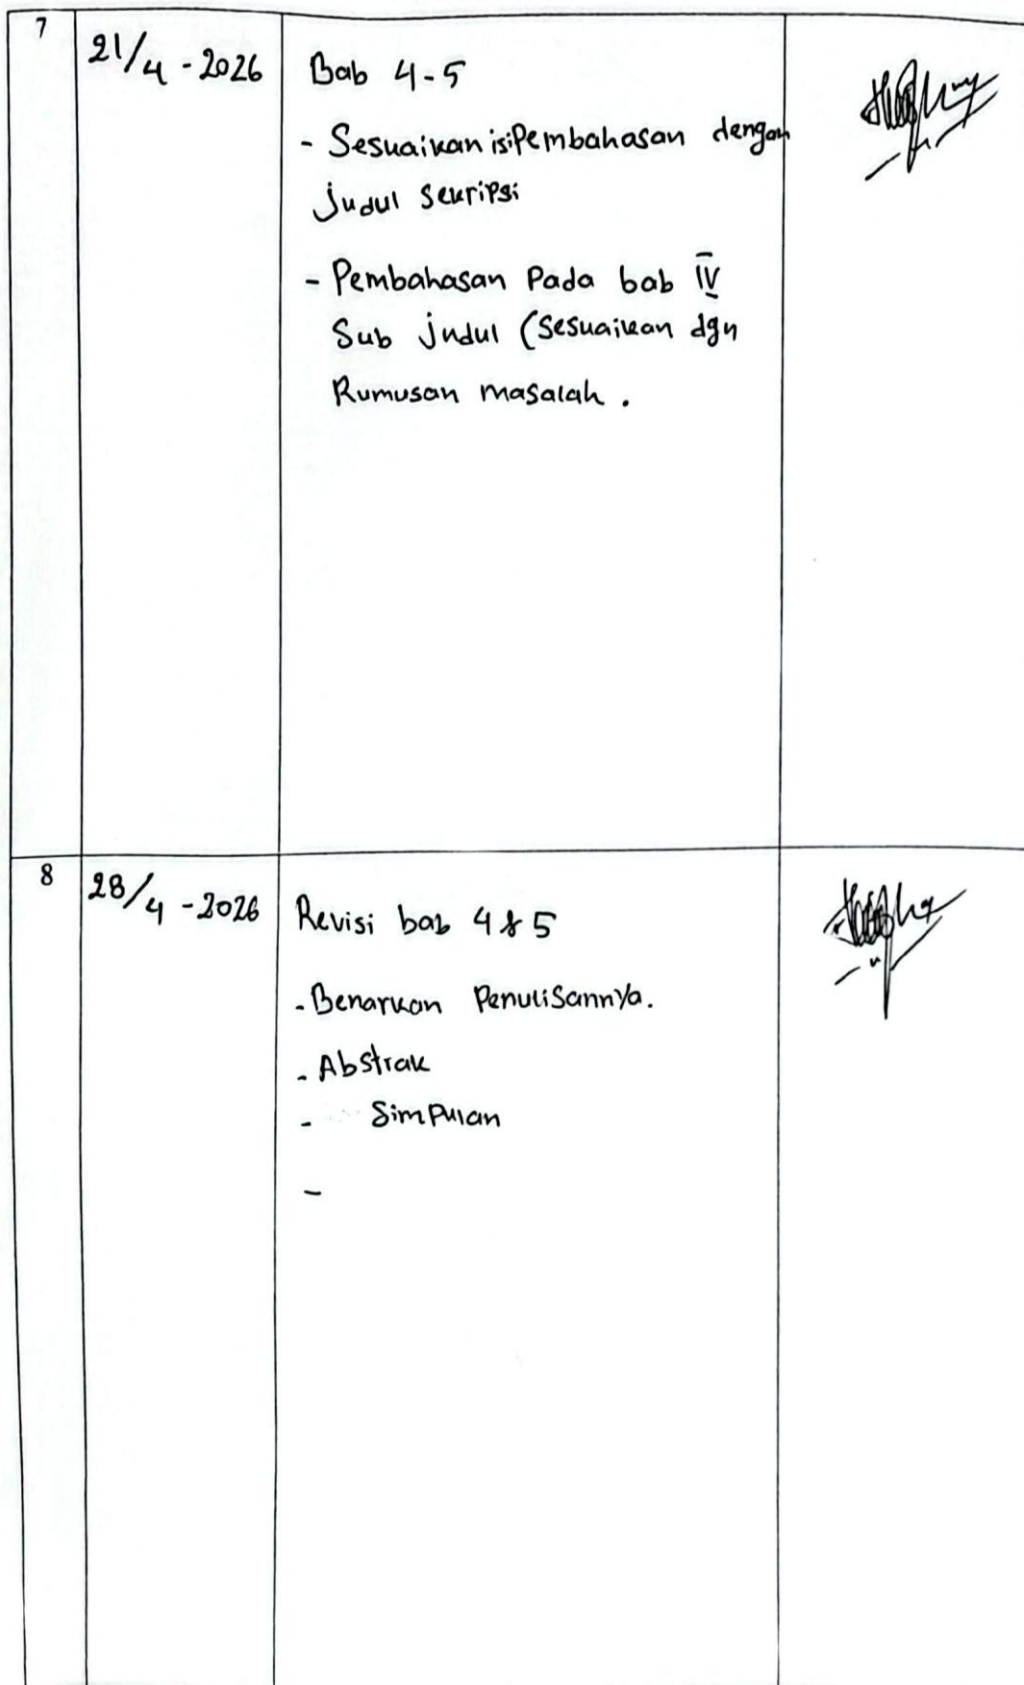 7
21/4 - 2026
Bab 4-5
- Sesuaikan isi Pembahasan dengan
judul Skripsi
- Pembahasan Pada bab IV
Sub judul (Sesuaikan dgn
Rumusan masalah .
8
28/4 - 2026
Revisi bab 4 & 5
- Benarkan Penulisannya.
- Abstrak
- Simpulan
-